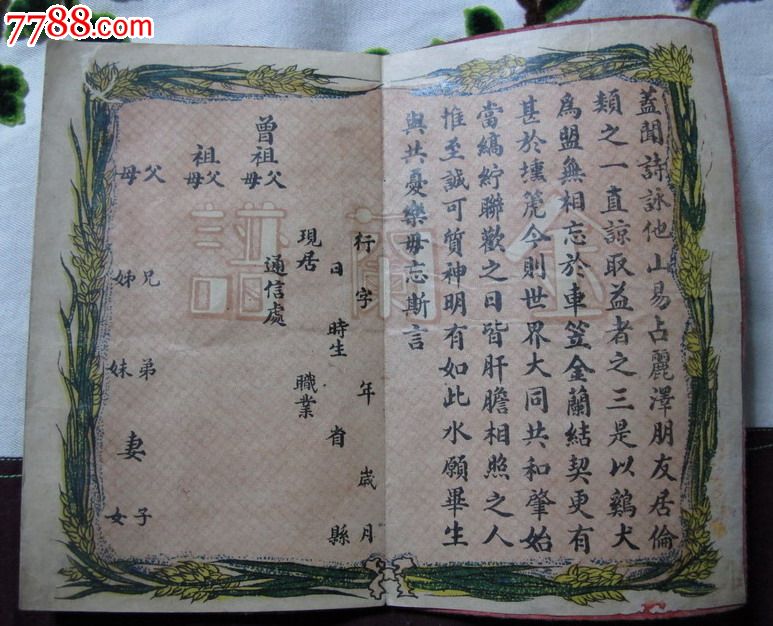 7788.com
中国收藏热线
金蘭譜
蓋聞詩詠他山易占麗澤朋友居倫
類之一直諒取益者之三是以鷄犬
為盟無相忘於車笠金蘭結契更有
甚於壎箎今則世界大同共和肇始
當縞紵聯歡之日皆肝膽相照之人
惟至誠可質神明有如此水願畢生
與共憂樂毋忘斯言
行字年歲月
日時生省縣
現居 職業
通信處
曾祖父母
祖父母
父母
兄姊
弟妹
妻
子女